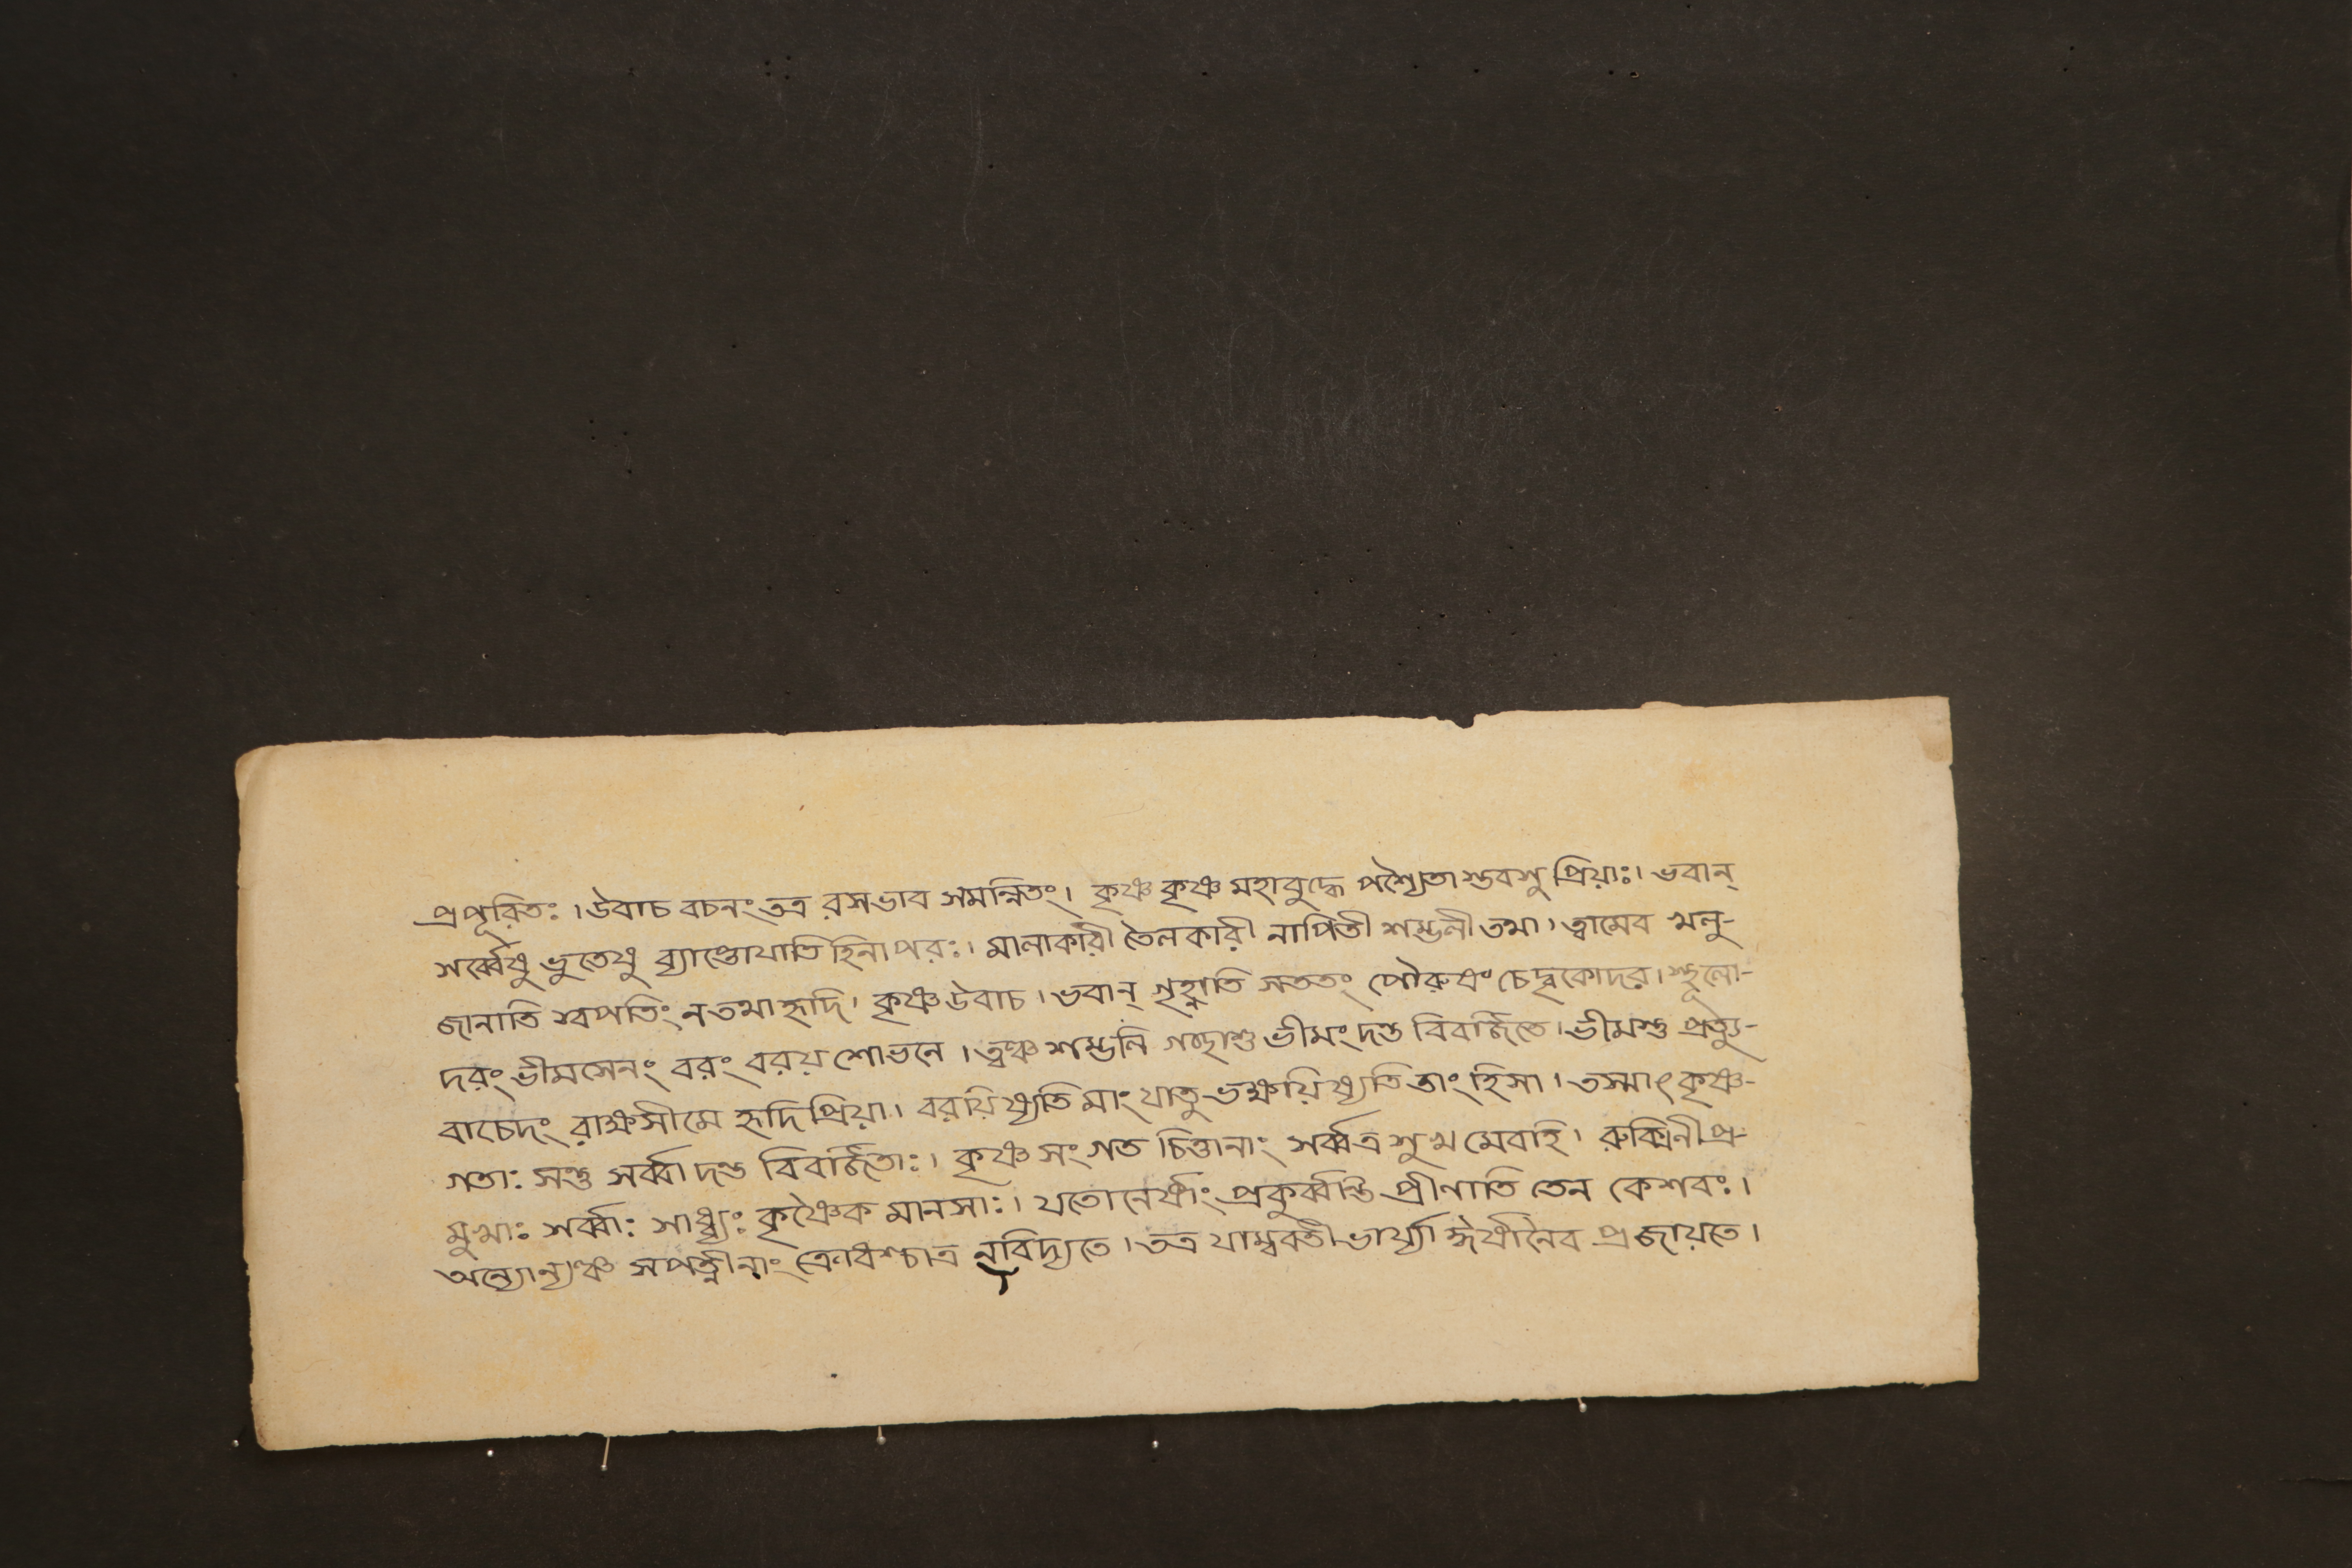 প্রপূরিতঃ । উবাচ বচনং তত্র রসভাব সমন্নিতং । কৃষ্ণ কৃষ্ণ মহাবুদ্ধে পশ্যৈতাস্তবসু প্রিয়াঃ । ভবান্
সর্ব্বেষু ভুতেষু ব্যাপ্তোযাতি হিনাপরঃ । মালাকারী তৈলকারী নাপিতী শম্ভলী তথা । ত্বামেব খলু-
জানাতি স্বপতিং ন তথা হৃদি । কৃষ্ণ উবাচ । ভবান্ গৃহ্নাতি সততং পৌরুষং চেদ্বৃকোদর । স্থূলো-
দরং ভীমসেনং বরং বরয় শোভনে । ত্বঞ্চ শম্ভলি গচ্ছাশু ভীমং দম্ভ বিবর্জিতে । ভীমস্তু প্রত্যু-
বাচেদং রাক্ষসীমে হৃদিপ্রিয়া । বরয়িষ্যতি মাং যাতু ভক্ষয়িষ্যতি তাং হিসা । তস্মাৎ কৃষ্ণ-
গতাঃ সন্তু সর্ব্বা দম্ভ বিবর্জিতাঃ । কৃষ্ণ সংগত চিত্তানাং সর্ব্বত্র সুখ মেবাহি । রুক্মিনীপ্র-
মুখাঃ সর্ব্বাঃ সাধ্ব্যঃ কৃষ্ণৈক মানসাঃ । যতোনের্ষাং প্রকুর্ব্বন্তি প্রীণাতি তেন কেশবঃ ।
অন্যোন্যঞ্চ সপত্নীনাং ক্রোধশ্চাত্র নবিদ্যতে । তত্র যাম্ববতী ভার্য্যা ঈর্ষানৈব প্রজায়তে ।